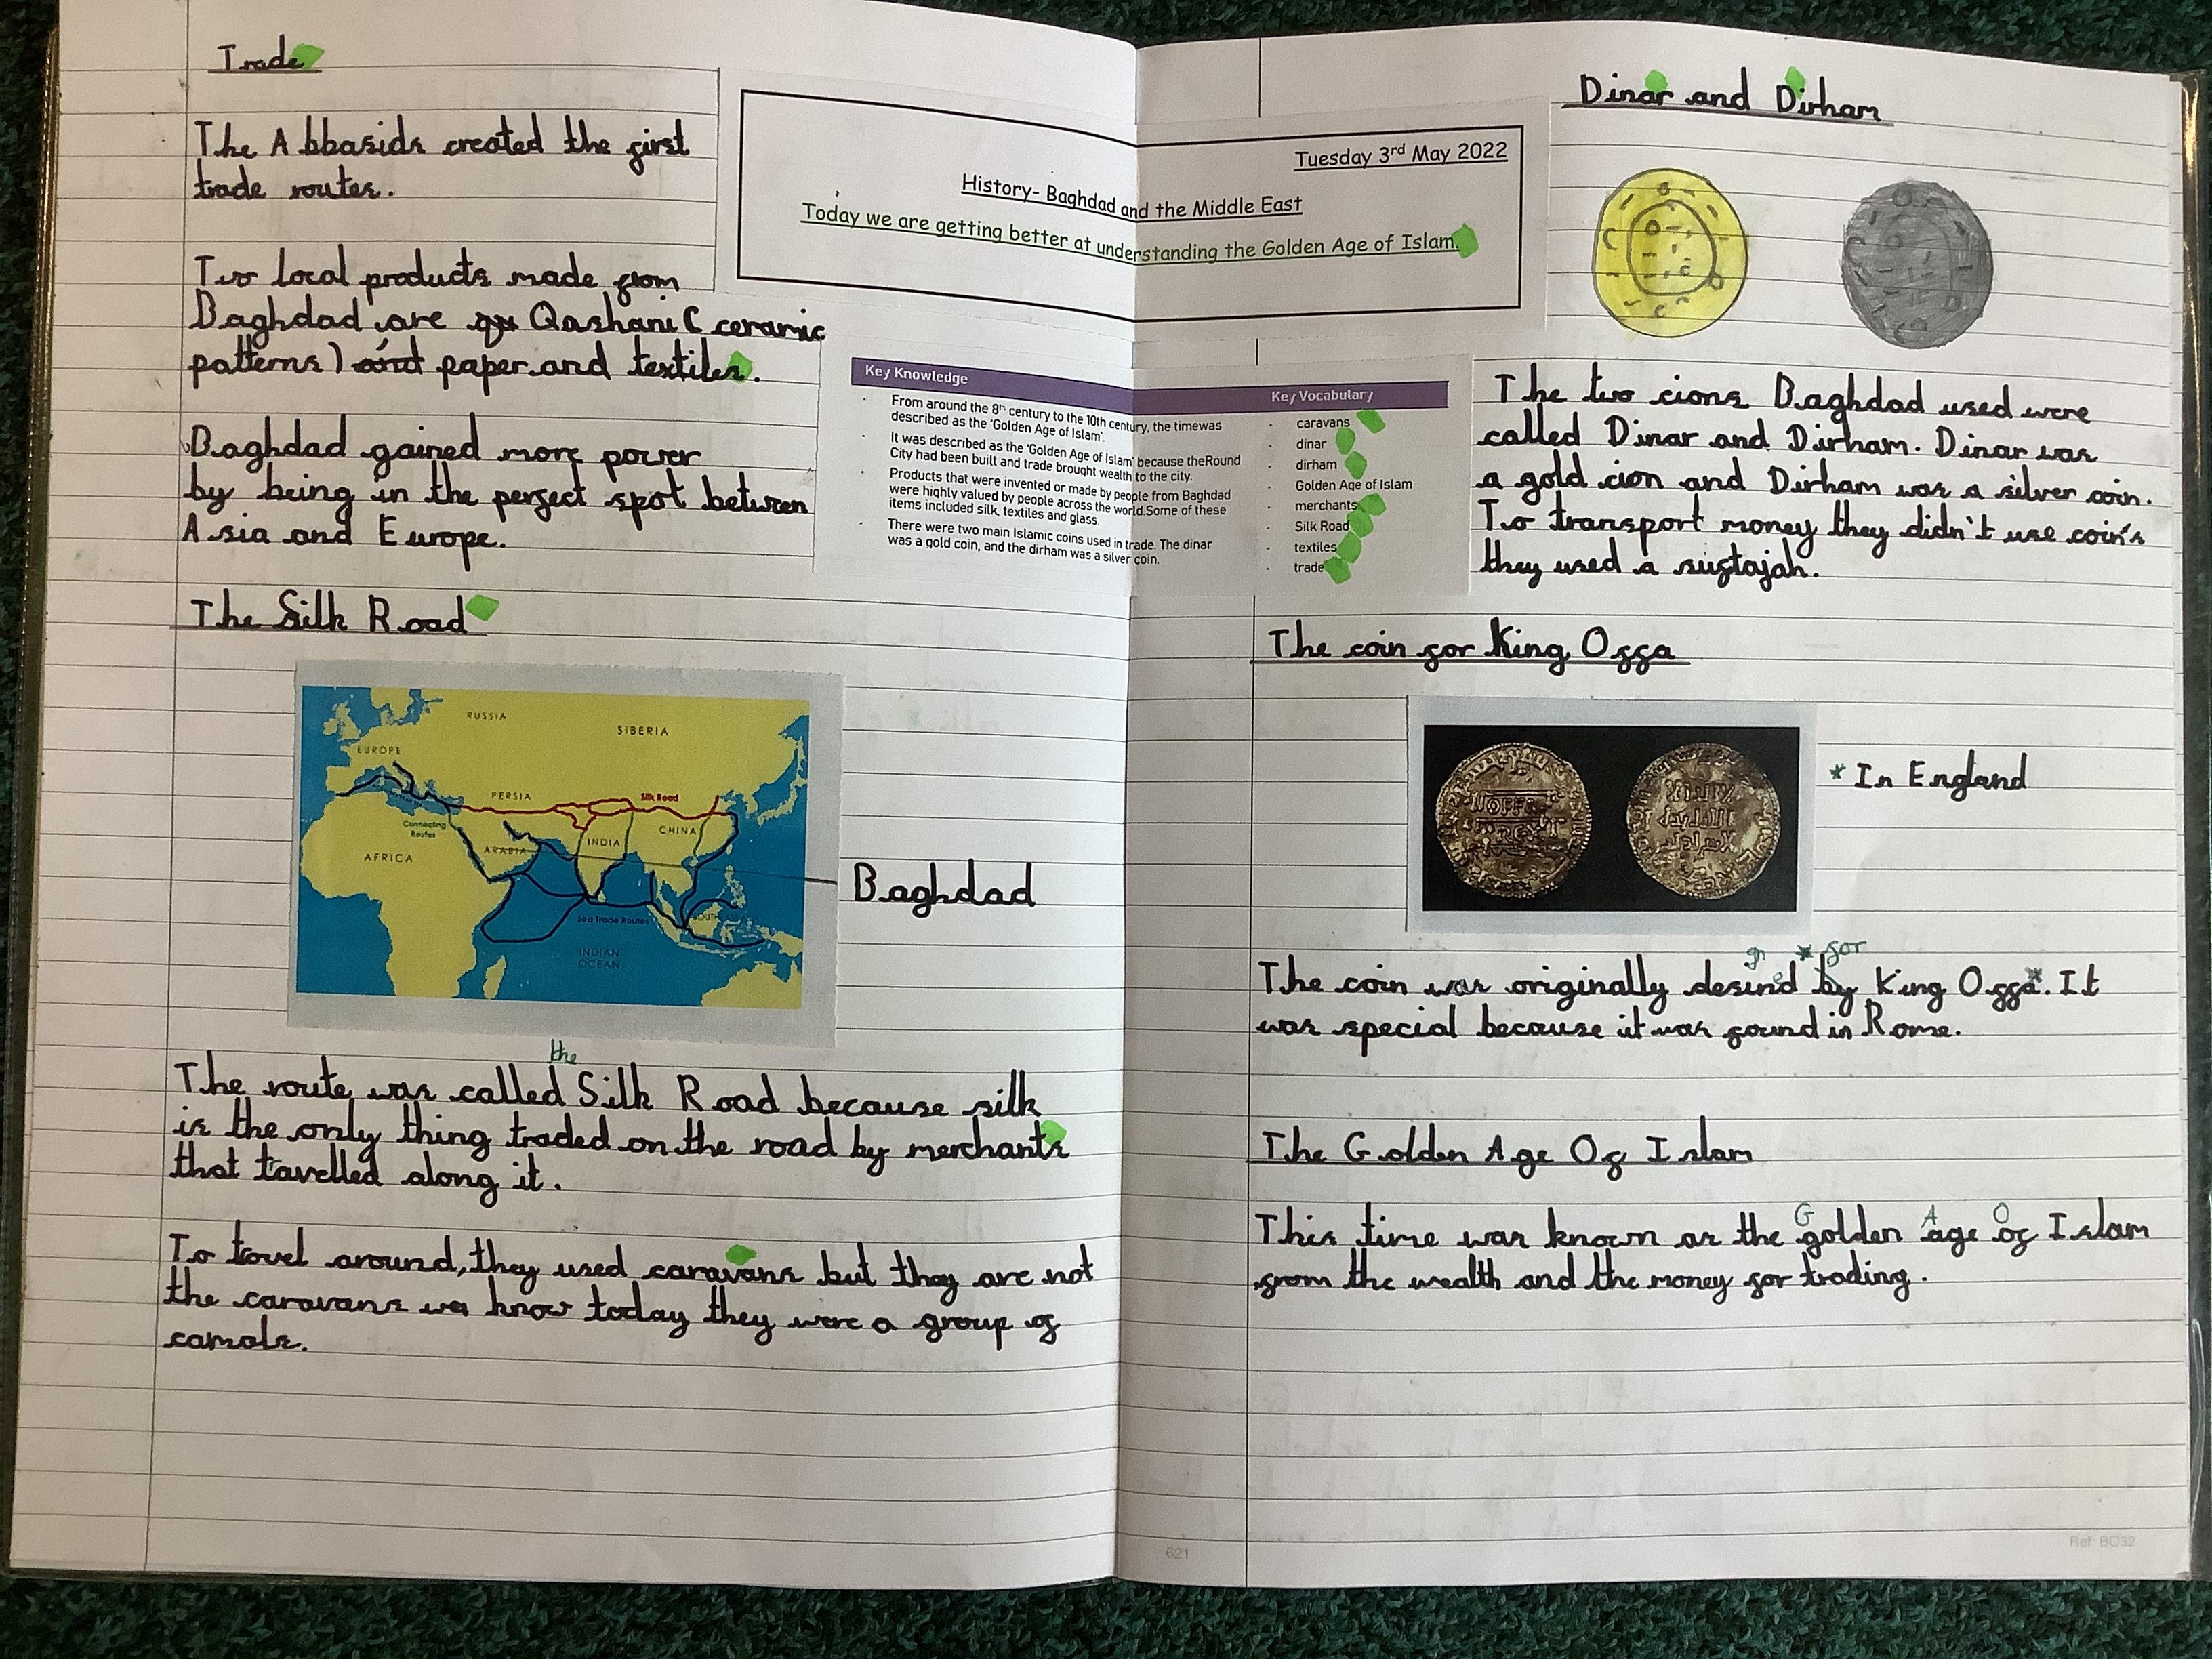 Trade
The Abbasids created the first
trade routes.
Two local products made from
Baghdad are Qashani (ceramic
patterns) and paper and textiles.
Baghdad gained more power
by being in the perfect spot between
Asia and Europe.
The Silk Road
RUSSIA
SIBERIA
EUROPE
PERSIA
Silk Road
Connecting
Routes
CHINA
INDIA
ARABIA
AFRICA
Sea Trade Routes
INDIAN
OCEAN
Baghdad
the
The route was called Silk Road because silk
is the only thing traded on the road by merchants
that tavelled along it.
To travel around, they used caravans but they are not
the caravans we know today they were a group of
camols.
Tuesday 3rd May 2022
History- Baghdad and the Middle East
Today we are getting better at understanding the Golden Age of Islam.
Key Knowledge
· From around the 8th century to the 10th century, the timewas
described as the 'Golden Age of Islam'.
· It was described as the 'Golden Age of Islam' because theRound
City had been built and trade brought wealth to the city.
· Products that were invented or made by people from Baghdad
were highly valued by people across the world.Some of these
items included silk, textiles and glass.
· There were two main Islamic coins used in trade. The dinar
was a gold coin, and the dirham was a silver coin.
Key Vocabulary
· caravans
· dinar
· dirham
· Golden Age of Islam
· merchants
· Silk Road
· textiles
· trade
Dinar and Dirham
The two cions Baghdad used were
called Dinar and Dirham. Dinar was
a gold cion and Dirham was a silver coin.
To transport money they didn't use coin's
they used a suftajah.
The coin for King Offa
OFFA
REX
* In England
gn * for
The coin was originally desind by King Offa*. It
was special because it was found in Rome.
The Golden Age Of Islam
G A O
This time was known as the golden age of Islam
from the wealth and the money for trading.
621
Ref: BO32